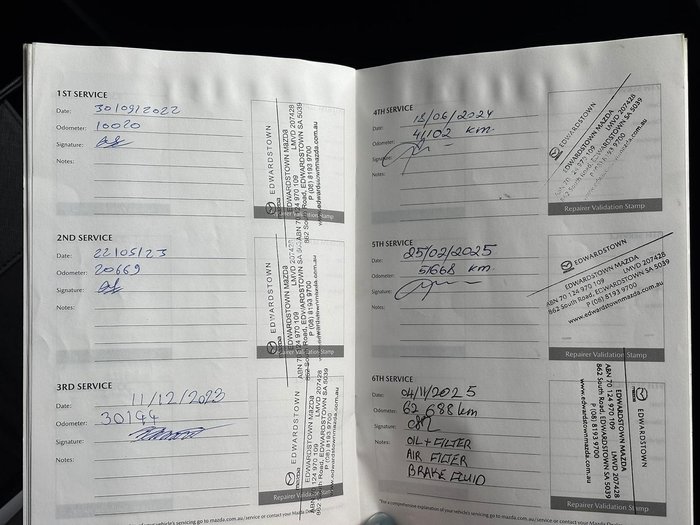 1ST SERVICE
Date: 30/09/2022
Odometer: 10020
Signature:
Notes:
EDWARDSTOWN
EDWARDSTOWN MAZDA
ABN 70 124 970 109 LMVD 207428
862 South Road, EDWARDSTOWN SA 5039
P (08) 8193 9700
www.edwardstownmazda.com.au
Repairer Validation Stamp
2ND SERVICE
Date: 22/05/23
Odometer: 20669
Signature:
Notes:
EDWARDSTOWN
EDWARDSTOWN MAZDA
ABN 70 124 970 109 LMVD 207428
862 South Road, EDWARDSTOWN SA 5039
P (08) 8193 9700
www.edwardstownmazda.com.au
Repairer Validation Stamp
3RD SERVICE
Date: 11/12/2023
Odometer: 30144
Signature:
Notes:
EDWARDSTOWN
EDWARDSTOWN MAZDA
ABN 70 124 970 109 LMVD 207428
862 South Road, EDWARDSTOWN SA 5039
P (08) 8193 9700
www.edwardstownmazda.com.au
Repairer Validation Stamp
vehicle's servicing go to mazda.com.au/service or contact your Mazda
4TH SERVICE
Date: 13/06/2024
Odometer: 41102 km
Signature:
Notes:
EDWARDSTOWN
EDWARDSTOWN MAZDA
ABN 70 124 970 109 LMVD 207428
862 South Road, EDWARDSTOWN SA 5039
P (08) 8193 9700
www.edwardstownmazda.com.au
Repairer Validation Stamp
5TH SERVICE
Date: 25/02/2025
Odometer: 51668 km
Signature:
Notes:
EDWARDSTOWN
EDWARDSTOWN MAZDA
ABN 70 124 970 109 LMVD 207428
862 South Road, EDWARDSTOWN SA 5039
P (08) 8193 9700
www.edwardstownmazda.com.au
Repairer Validation Stamp
6TH SERVICE
Date: 04/11/2025
Odometer: 62 688 km
Signature:
Notes: OIL + FILTER
AIR FILTER
BRAKE FLUID
EDWARDSTOWN
EDWARDSTOWN MAZDA
ABN 70 124 970 109 LMVD 207428
862 South Road, EDWARDSTOWN SA 5039
P (08) 8193 9700
www.edwardstownmazda.com.au
Repairer Validation Stamp
*For a comprehensive explanation of your vehicle's servicing go to mazda.com.au/service or contact your Mazda